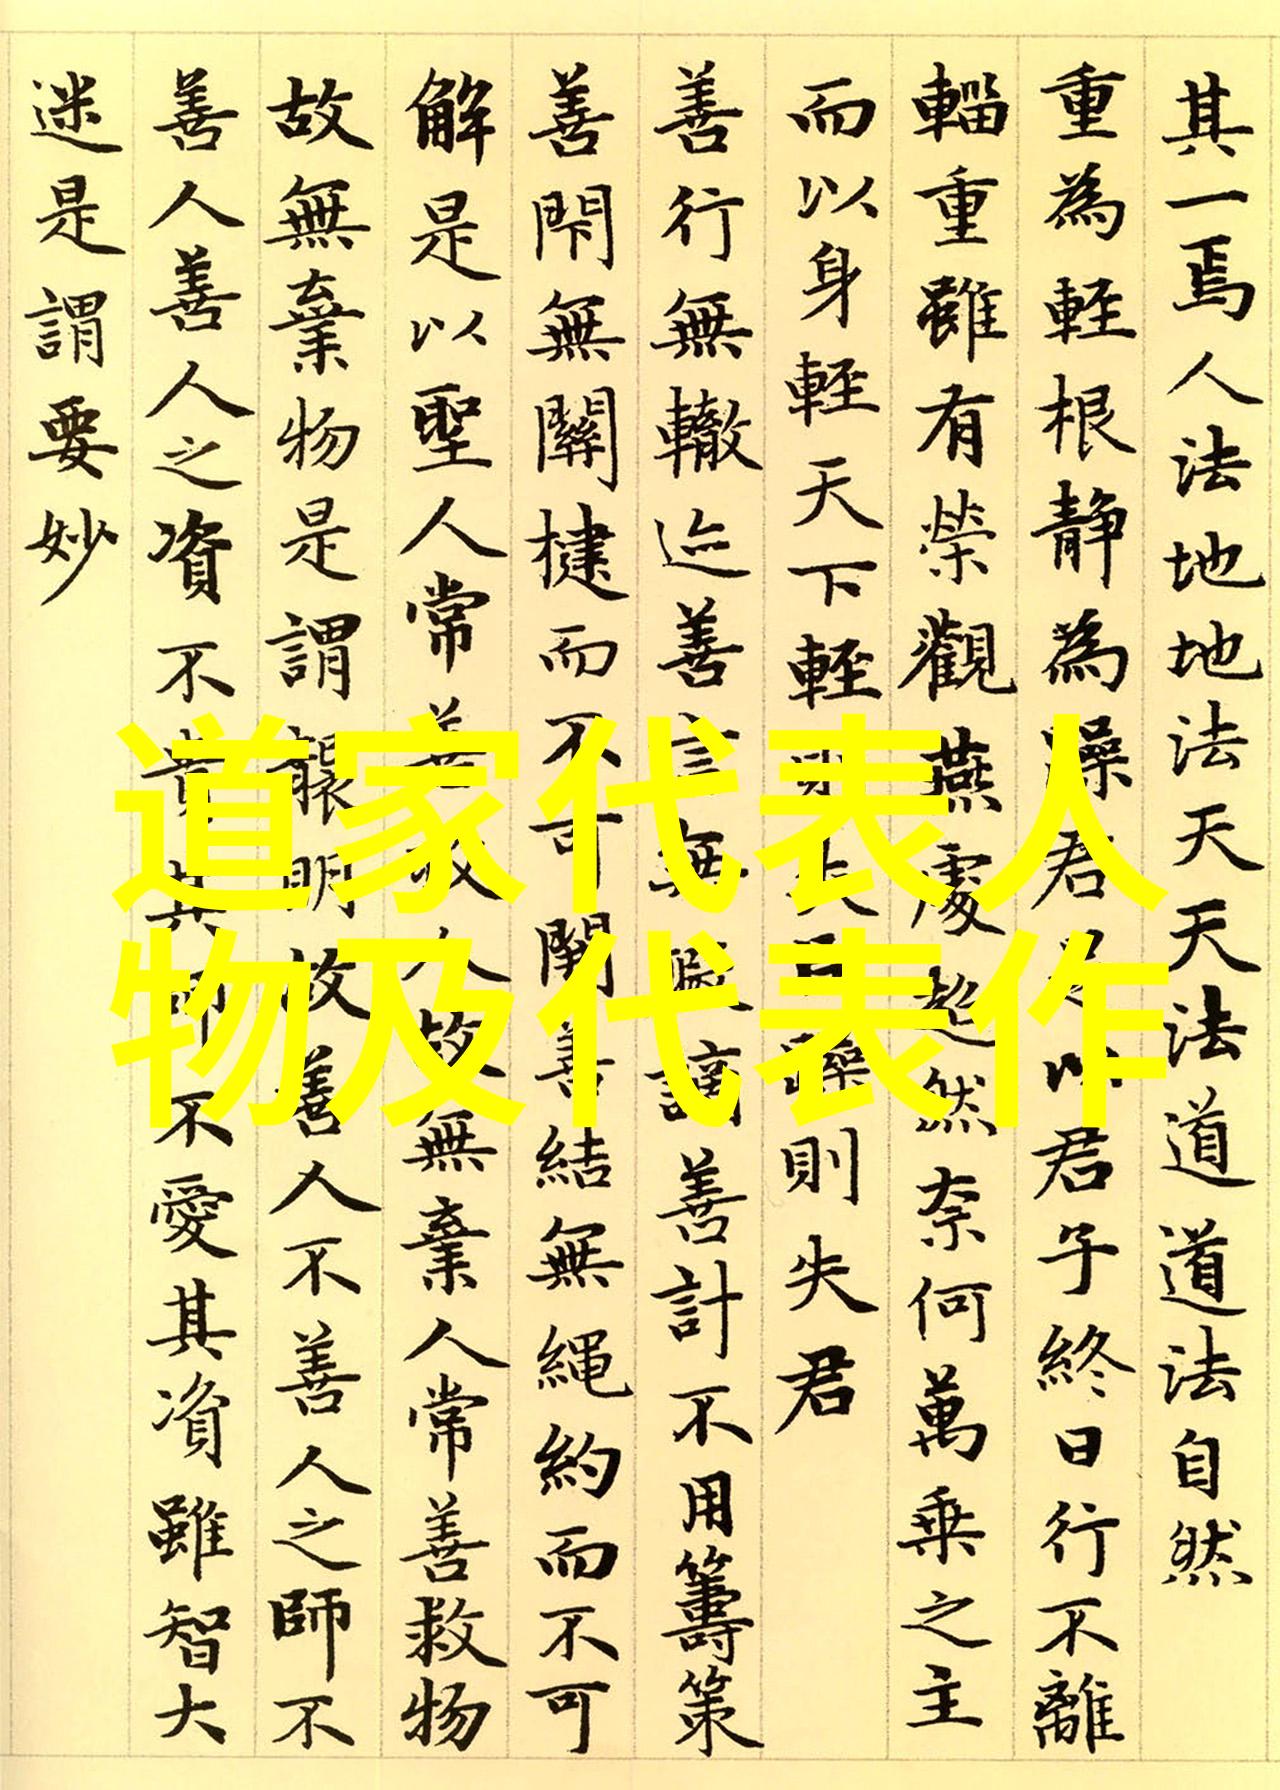 其一焉人法地地法天天法道道法自然
重為輕根靜為躁君是以君子終日行不離
輜重雖有榮觀燕處超然奈何萬乘之主
而以身輕天下輕則失臣躁則失君
善行無轍迹善言無瑕謫善計不用籌策
善閇無關楗而不可開善結無繩約而不可
解是以聖人常善救人故無棄人常善救物
故無棄物是謂襲明故善人不善人之師不
善人善人之資不貴其師不愛其資雖智大
迷是謂要妙
道家代表人
物及代表作